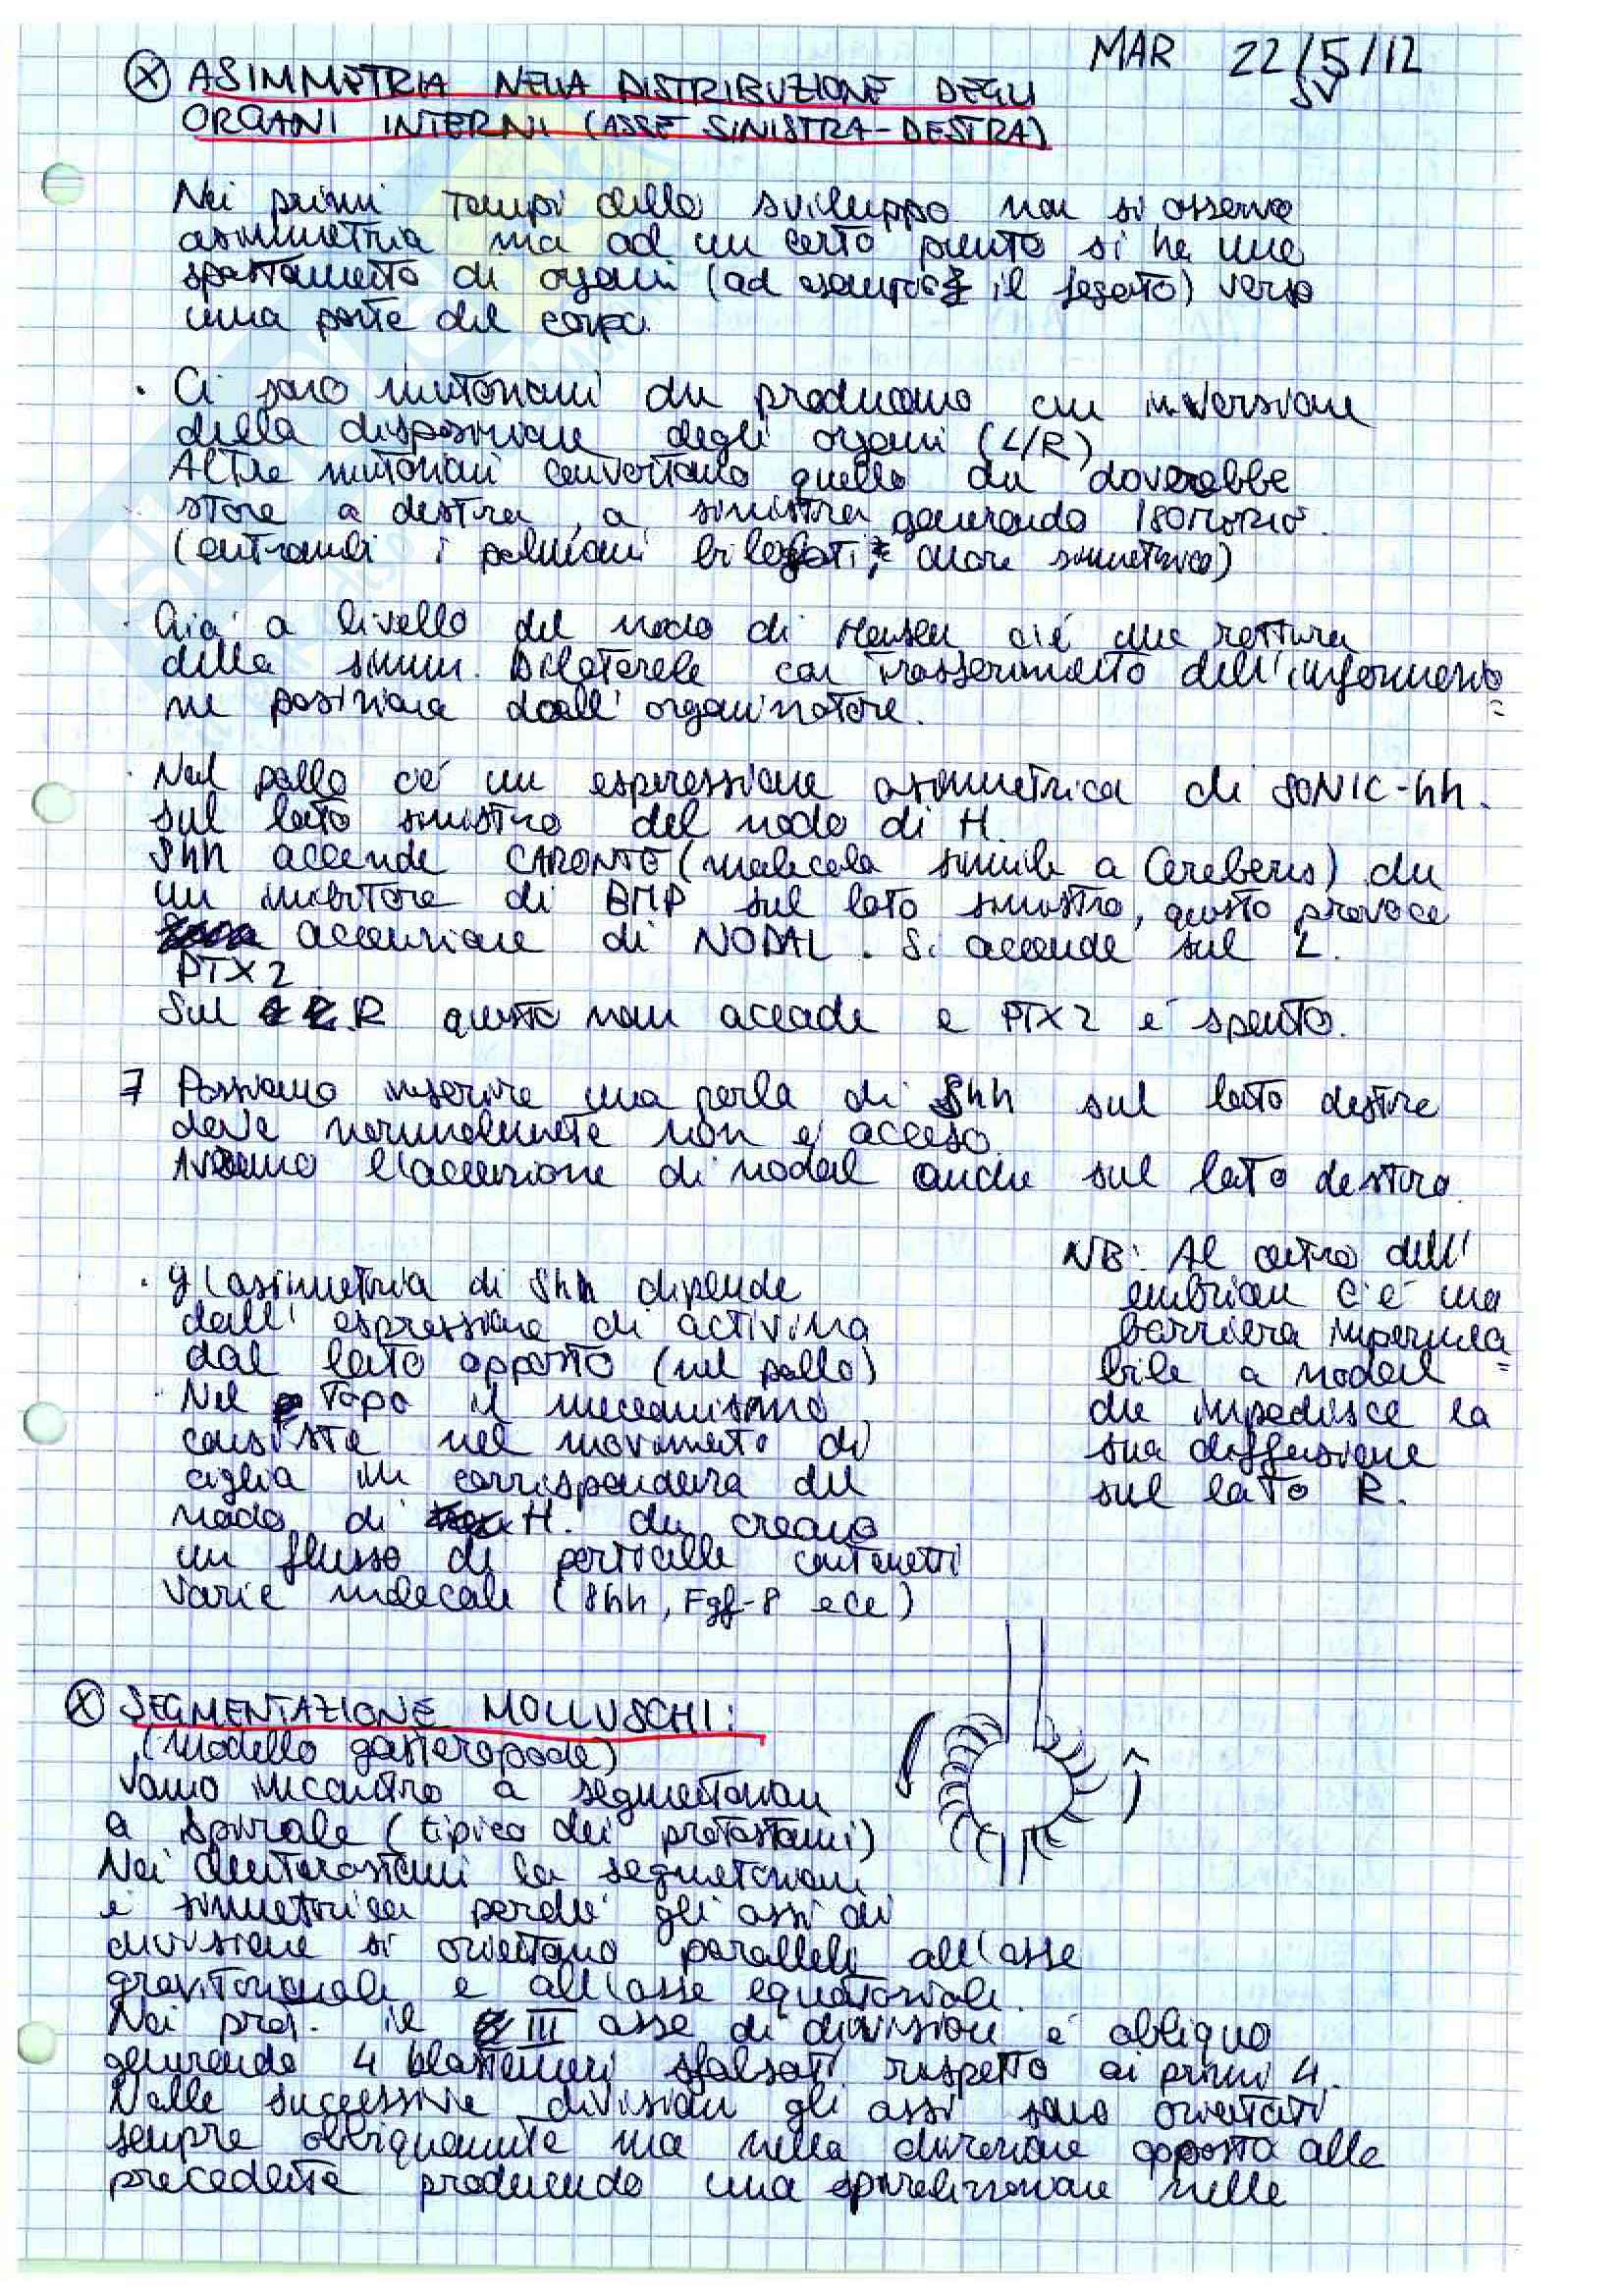 MAR 22/5/12
SV
ⓧ ASIMMETRIA NELLA DISTRIBUZIONE DEGLI
ORGANI INTERNI (ASSE SINISTRA-DESTRA)
Nei primi tempi dello sviluppo non si osserva
asimmetria ma ad un certo punto si ha uno
spostamento di organi (ad esempio il fegato) verso
una parte del corpo.
· Ci sono mutazioni che producono un inversione
della disposizione degli organi (L/R)
Altre mutazioni convertono quello che doverebbe
stare a destra, a sinistra generando ISOMORIO
(entrambi i polmoni bilobati, cuore simmetrico)
· Gia' a livello del nodo di Hensen c'è una rottura
della simm. Bilaterale con trasferimento dell'informazio=
ne posizione dall'organizzatore.
· Nel pollo c'e' un espressione asimmetrica di SONIC-hh.
sul lato sinistro del nodo di H.
Shh accende CARONTE (molecola simile a Cereberus) che
un inibitore di BMP sul lato sinistro, questo provoca
accensione di NODAL. Si accende sul L.
PTX2
Sul R questo non accade e PTX2 e' spento.
7 Possiamo inserire una perla di Shh sul lato destro
dove normalmente non e' acceso.
Avremo l'accensione di nodal anche sul lato destro.
· L'asimmetria di Shh dipende
dall'espressione di activina
dal lato opposto (nel pollo)
· Nel Topo il meccanismo
consiste nel movimento di
ciglia in corrispondenza del
nodo di H. che creano
un flusso di particelle contenenti
varie molecole (Shh, Fgf-8 ecc)
NB: Al centro dell'
embrione c'e' una
barriera impermea=
bile a nodal
che impedisce la
sua diffusione
sul lato R.
ⓧ SEGMENTAZIONE MOLLUSCHI:
(modello gasteropode)
Vanno incontro a segmentazione
a spirale (tipico dei protostomi)
Nei deuterostomi la segmentazione
e' simmetrica perche' gli assi di
divisione si orientano paralleli all'asse
gravitazionale e all'asse equatoriale.
Nei prot. il III asse di divisione e' obliquo
generando 4 blastomeri sfalsati rispetto ai primi 4.
Nelle successive divisioni gli assi sono orientati
sempre obliquamente ma nella direzione opposta alla
precedente producendo una spiralizzazione nelle